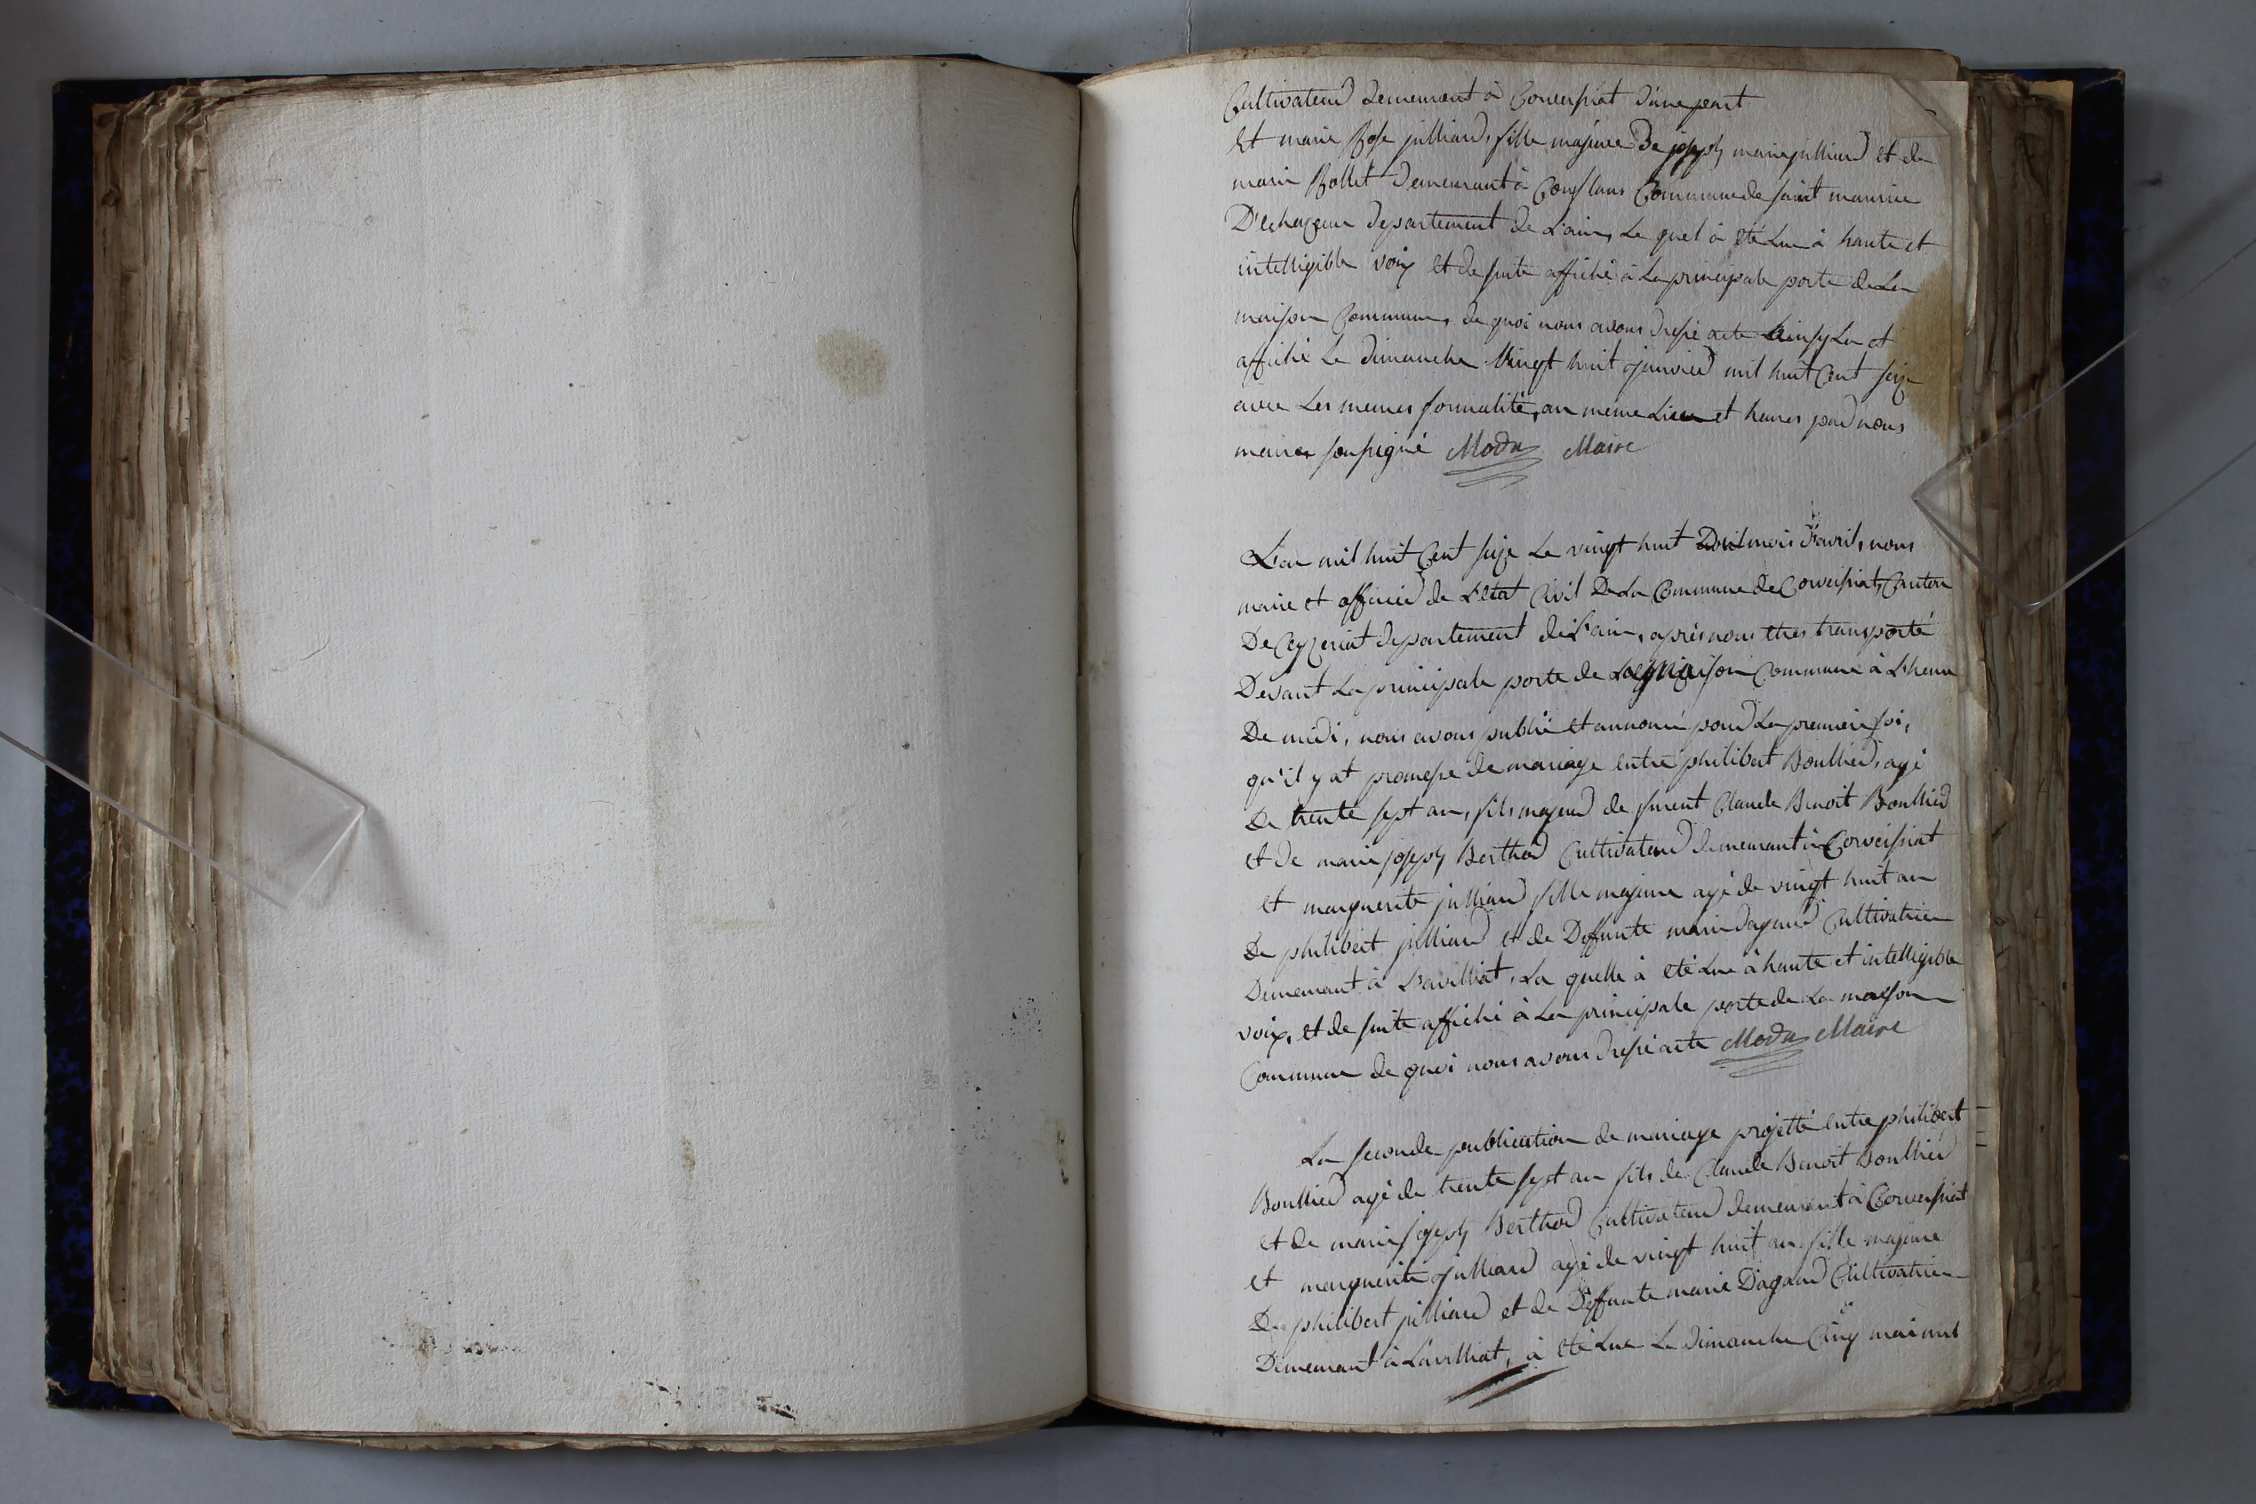 Cultivateur demeurant à Corveissiat d'une part
Et marie Rose julliard, fille majeure De joseph marie julliard et de
marie Rollet demeurant à Conflans Commune de saint maurice
D'echazeau departement de L'ain, Le quel à été Lue à haute et
intelligible voix et de suite affiché à La principale porte de La
maison Commune, de quoi nous avons dressé acte Lu et
affiché Le dimanche Vingt huit janvier mil huit Cent seize
avec Les memes formalité, au meme Lieu et heures par nous
maire soussigné Moda Maire
L'an mil huit Cent seize Le vingt huit mois d'avril, nous
maire et officier de L'etat Civil De La Commune de Corveissiat, Canton
De Ceyzeriat departement de L'ain, après nous etres transporté
Devant La principale porte de La maison Commune à L'heure
De midi, nous avons publié et annoncé pour La premiere foi,
qu'il y at promesse de mariage entre philibert Boullier, agé
De trente sept an, fils majeur de furent Claude Benoit Boullier
et de marie joseph Berthod Cultivateur demeurant à Corveissiat
et marguerite julliard fille majeure agé de vingt huit an
De philibert julliard et de Deffunte marie Dagaud Cultivatrice
Demeurant à L'avilliat, La quelle à eté Lue à haute et intelligible
voix, et de suite affiché à La principale porte de La maison
Commune de quoi nous avons dressé acte Moda Maire
La seconde publication de mariage projetté entre philibert
Boullier agé de trente sept an fils de Claude Benoit Boullier
et de marie joseph Berthod Cultivateur demeurant à Corveissiat
et marguerite julliard agé de vingt huit an fille majeure
De philibert julliard et de Deffunte marie Dagaud Cultivatrice
Demeurant à L'avilliat, à eté Lue Le dimanche Cinq mai mil